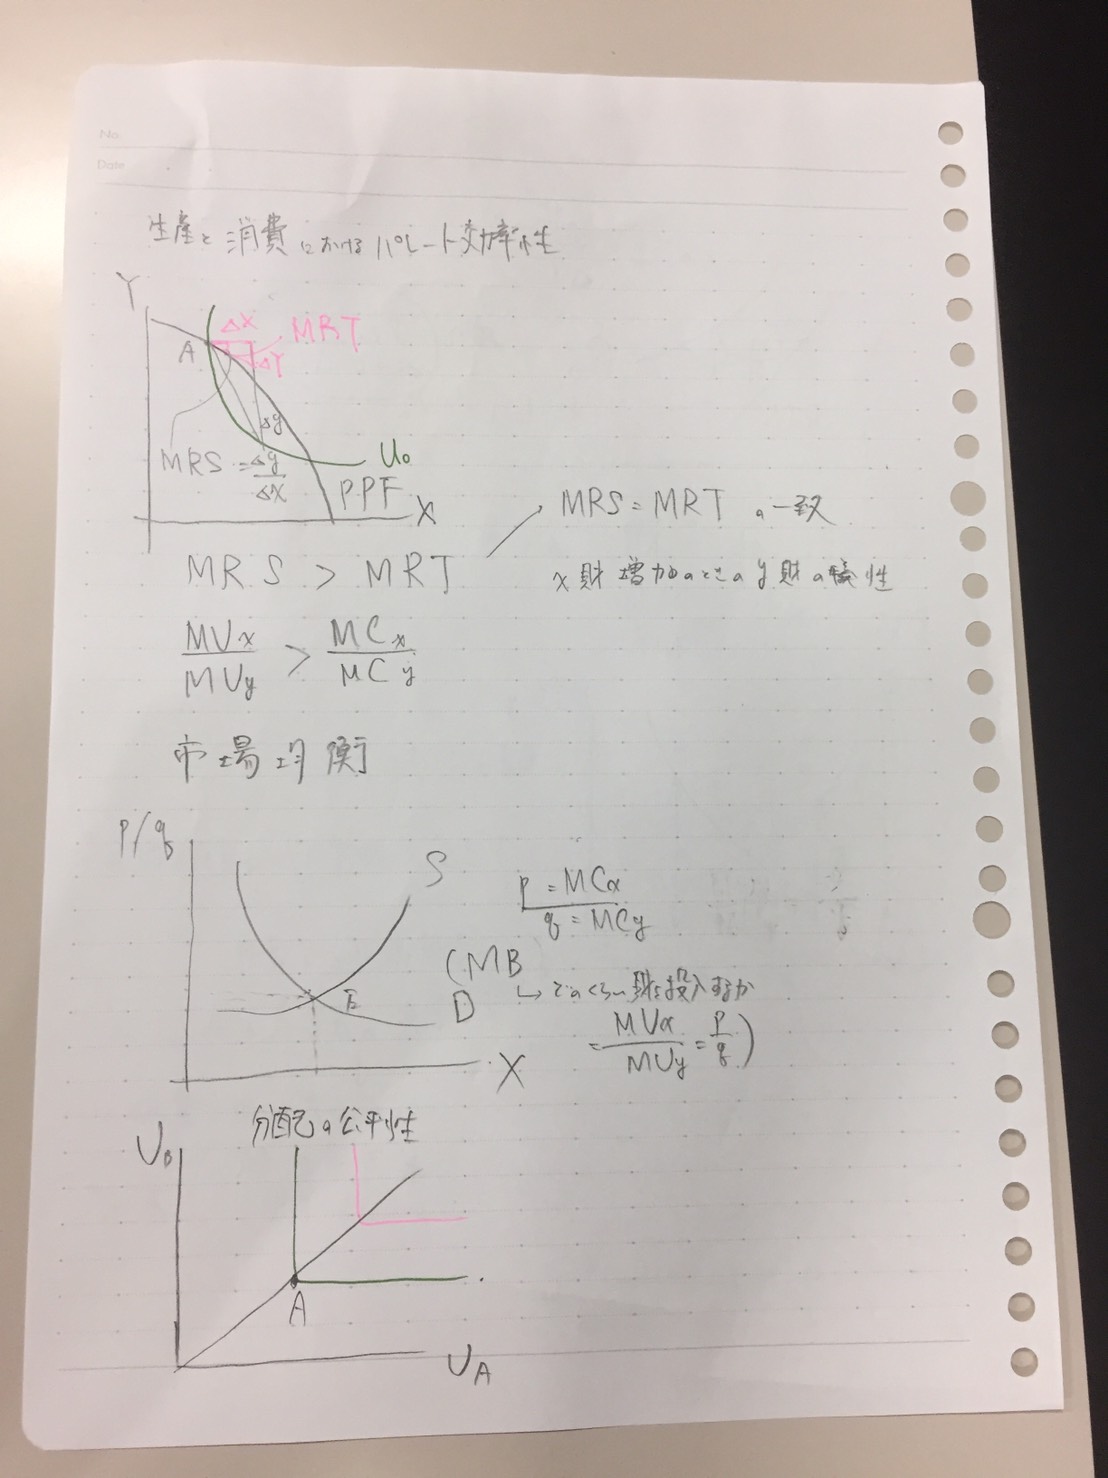 No.
Date
生産と消費におけるパレート効率性
Y
ΔX
MRT
A
ΔY
Δy
MRS = Δy/ΔX
U₀
PPF
X
MRS = MRT の一致
MRS > MRT
x財増加のときのy財の犠牲
MUx/MUy > MCx/MCy
市場均衡
P/q
S
P = MCx
q = MCy
(MB
E
D
↳ どのくらい財を投入するか
= MUx/MUy = P/q)
X
分配の公平性
U_B
A
U_A